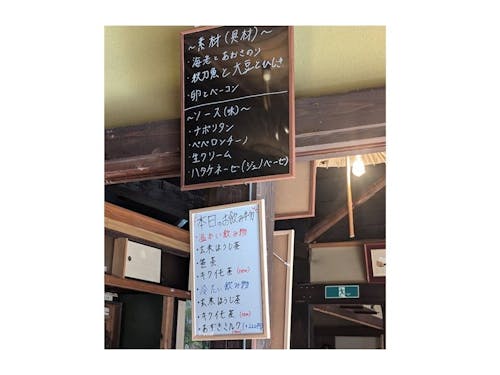 ～素材(具材)～
・海老とあおさのり
・秋刀魚と大豆とひじき
・卵とベーコン
～ソース(味)～
・ナポリタン
・ペペロンチーノ
・生クリーム
・ハタケネーゼ(ジェノベーゼ)
本日のお飲み物
・温かい飲み物
・玄米ほうじ茶
・笹茶
・キクイモ茶
・冷たい飲み物
・玄米ほうじ茶
・キクイモ茶